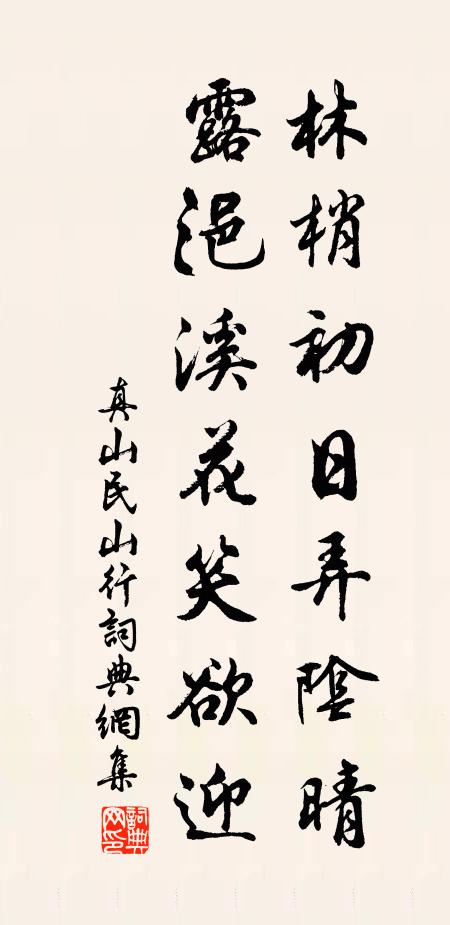 林梢初日弄陰晴
露浥溪花笑欲迎
真山民山行詞典網集
詞典網印